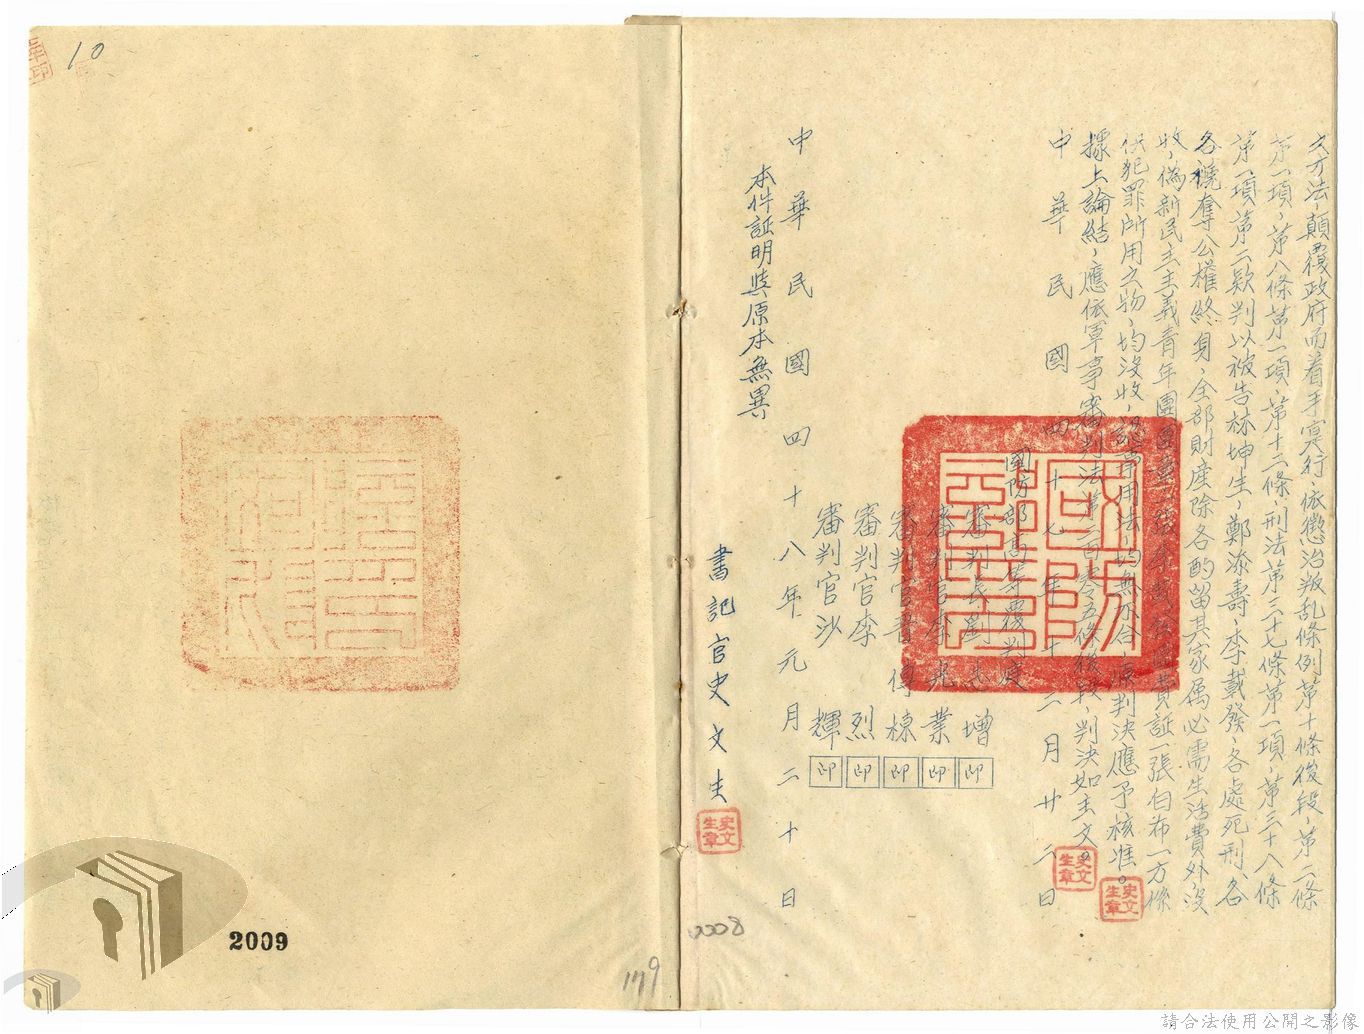 文方法顛覆政府而着手實行，依懲治叛乱條例第十條後段，第二條
第一項，第八條第一項，第十二條，刑法第三十七條第一項，第三十八條
第一項第二款判以被告林坤生，鄭添壽，李戴發，各處死刑，各
各褫奪公權終身，全部財產除各酌留其家属必需生活費外沒
收，偽新民主主義青年團團章一張
費証一張白布一方係
供犯罪所用之物，均沒收，
用法，均無不合，原判決應予核准。
據上論結，應依軍事審判法第一百零五條後段，判決如主文。
中華民國四十七年十二月廿二日
國防部高等覆判庭
審判長劉
增 印
審判官李
業 印
審判官
棟 印
審判官李 烈 印
審判官沙 輝 印
中華民國四十八年元月二十日
本件証明與原本無異
書記官史文生
史文生章
史文生章
史文生章
10
2009
179
0008
請合法使用公開之影像